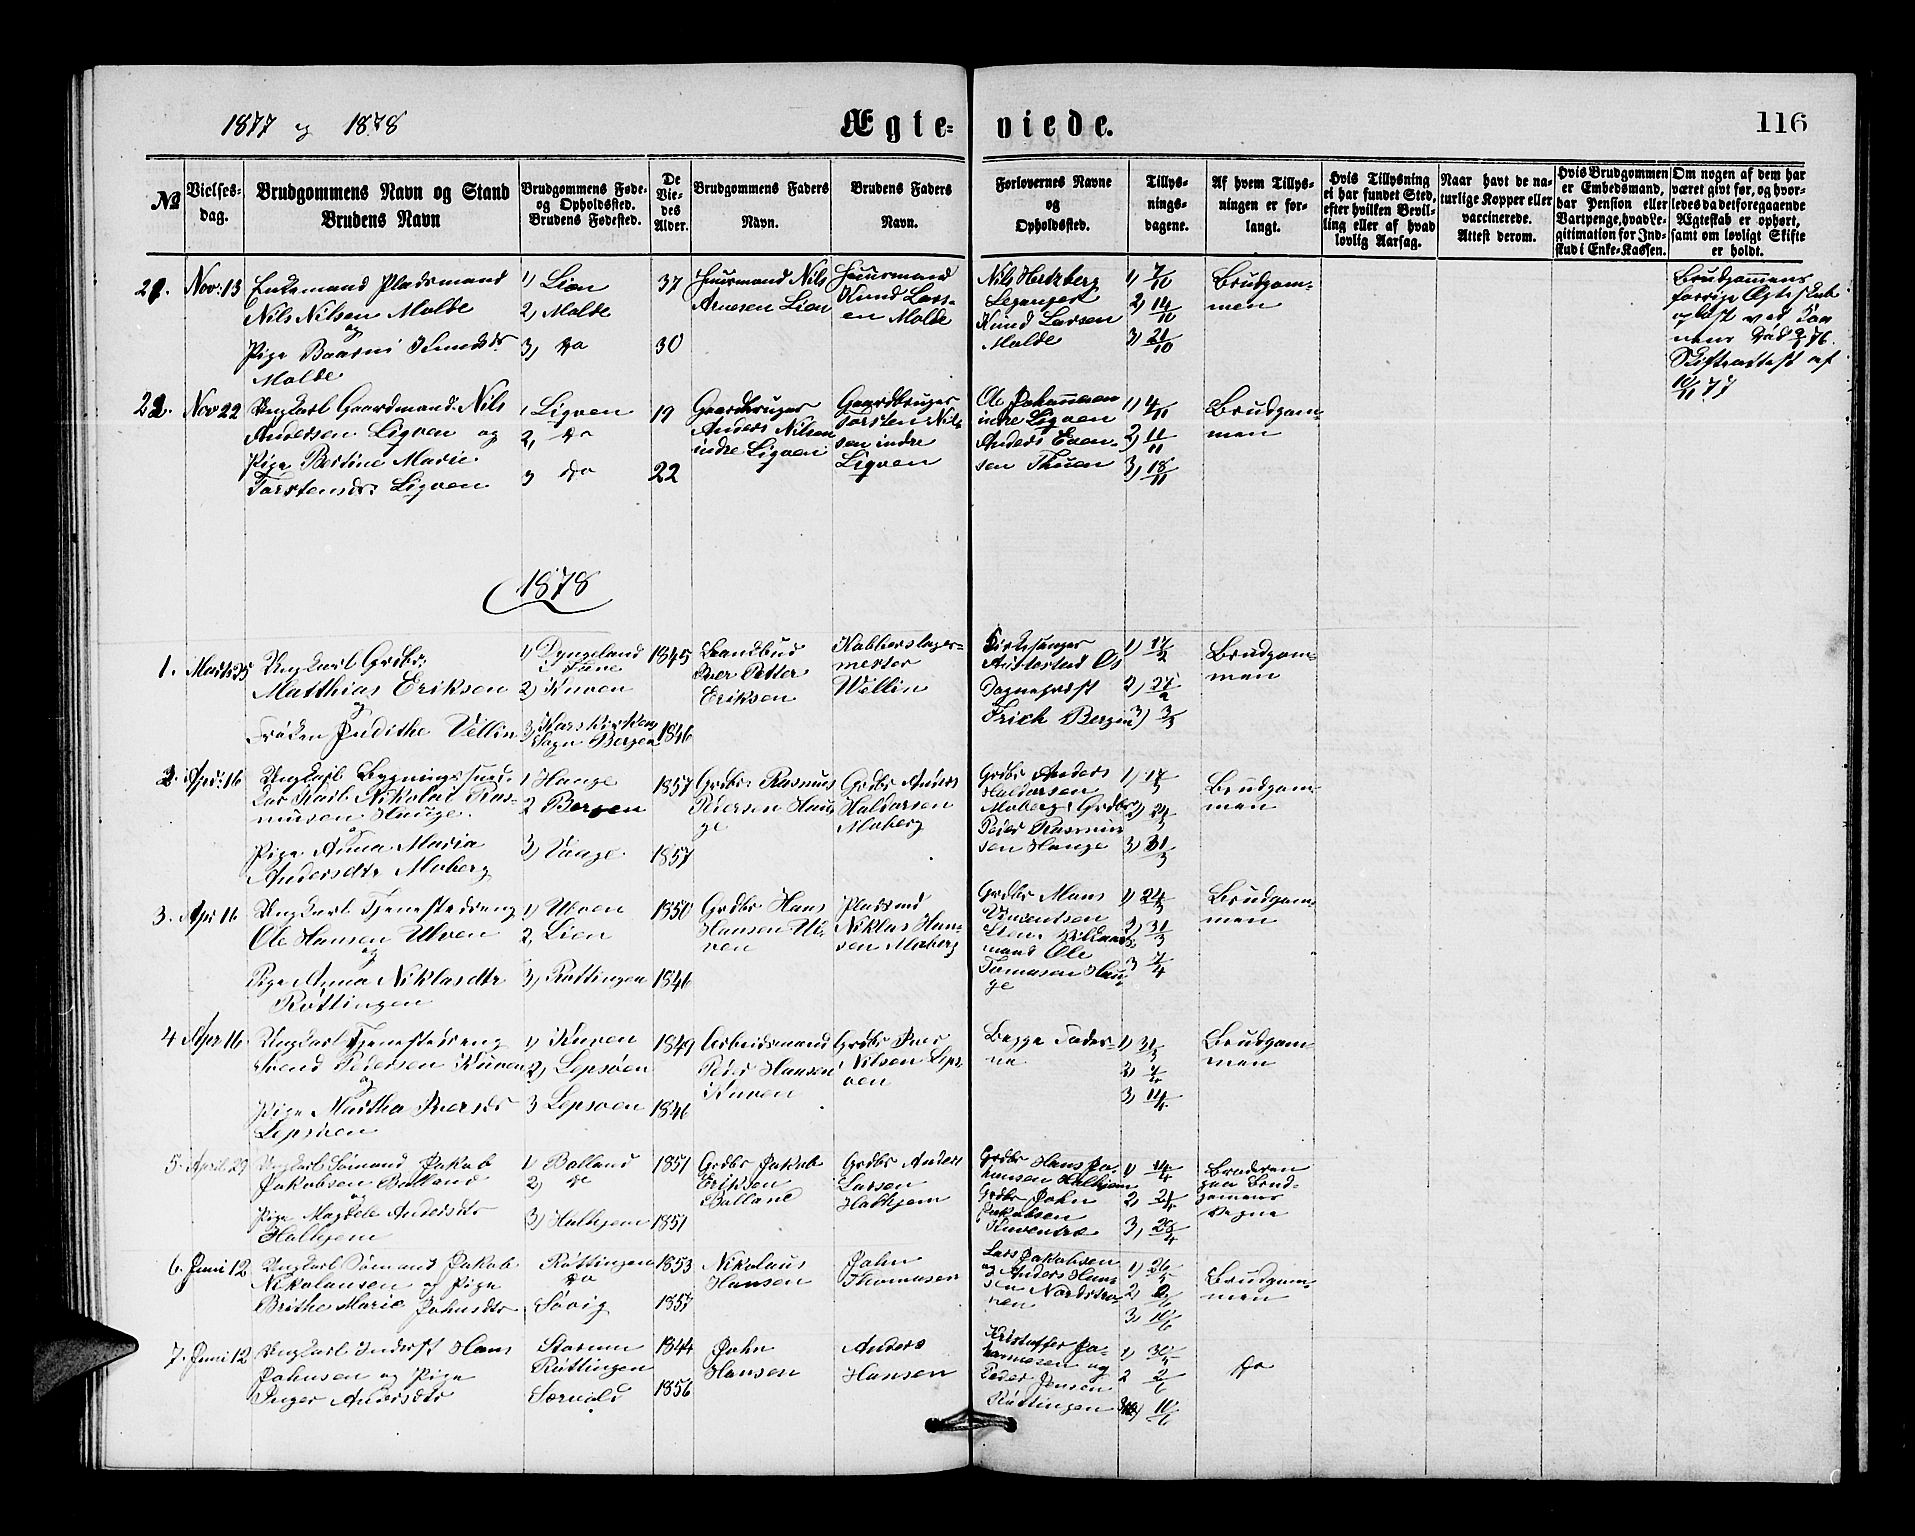 1877 og 1878
Ægte-
viede.
116
No
Vielses-
dag.
Brudgommens Navn og Stand
Brudens Navn
Brudgommens Føde-
og Opholdssted.
Brudens Fødested.
De
Vie-
des
Alder.
Brudgommens Faders
Navn.
Brudens Faders
Navn.
Forlovernes Navne
og
Opholdssted.
Tillys-
nings-
dagene.
Af hvem Tillys-
ningen er for-
langt.
Hvis Tillysning
ei har fundet Sted,
efter hvilken Bevil-
ling eller af hvad
lovlig Aarsag.
Naar havt de na-
turlige Kopper eller
vaccinerede.
Attest derom.
Hvis Brudgommen
er Embedsmand,
har Pension eller
Vartpenge, hvad Le-
gitimation for Ind-
skud i Enke-Kassen.
Om nogen af dem har
været givt før, og hvor-
ledes da det foregaaende
Ægteskab er ophørt,
samt om lovligt Skifte
er holdt.
21. Nov: 13
Enkemand Pladsmand
Nils Nilsen Molde
og
Pige Baarni Knudsdr
Molde
1) Lien
2) Molde
3) do
37
30
Huusmand Nils
Arnesen Lien
Huusmand
Knud Lars-
en Molde
Nils Hertzberg
Legangest
Knud Larsen
Molde
1) 7/10
2) 14/10
3) 21/10
Brudgom-
men
Brudgommens
forrige Ægteskab
opløst ved Kon-
nens Død
Skifteattest af
10/11 77
22. Nov 22
Ungkarl Gaardmand Nils
Andersen Ligven og
Pige Bertine Marie
Torstensdr Ligven
1 Ligven
2, do
3 do
19
22
Gaardbruger
Anders Nilsen
indre Ligven
Gaardbruger
Torsten Nil-
sen indre
Ligven
Ole Johannesen
indre Ligven
Anders Even-
sen Thuen
1) 4/11
2) 11/11
3) 18/11
Brudgom-
men
1878
1. Marts 25
Ungkarl Grdbr.
Matthias Eriksen
og
Frøken Judithe Vellin
1) Dyngeland
Fane
2) Kuven
3) Korskirken
Sogn Bergen
1845
1846
Landbud
Peter
Eriksen
Kobberslager-
mester
Wellin
Kirkesanger
Os
Dagneprest
Frich Bergen
1) 17/2
2) 24/2
3) 3/3
Brudgom-
men
2. Apr: 16
Ungkarl Bygningssned-
ker Karl Nikolai Ras-
musen Hauge
og
Pige Anna Maria
Andersdtr Moberg
1 Hauge
2 Bergen
3) Vaage
1857
1857
Grdbr Rasmus
Pedersen Hau-
ge
Grdbr Anders
Haldorsen
Moberg
Grdbr Anders
Haldorsen
Moberg, Grdbr
Peder Rasmus-
sen Hauge
1) 17/3
2) 24/3
3) 31/3
Brudgom-
men
3. Apr 16
Ungkarl Tjenestedreng
Ole Hansen Ulven
og
Pige Anna Niklasdtr
Røttingen
1) Ulven
2, Lien
3) Røttingen
1850
1846
Grdbr Hans
Hansen Ul-
ven
Pladsmd
Niklas Han-
sen Moberg
Grdbr Mons
Vincentsen
Lien,
mand Ole
Tomasen Hau-
ge
1) 24/3
2) 31/3
3 7/4
Brudgom-
men
4 Apr 16
Ungkarl Tjenestedreng
Svend Pedersen Kuven
og
Pige Martha Iversdr
Lepsøen
1) Kuven
2) Lepsøen
3 Lepsøen
1849
1846
Arbeidsmand
Peder Hansen
Kuven
Grdbr Iver
Nilsen Leps-
øen
Begge Fæder-
ne
1) 31/3
2) 7/4
3) 14/4
Brudgom-
men
5. April 29
Ungkarl Sømand Jakob
Jakobsen Balland
og
Pige Magdele Andersdtr
Halhjem
1) Balland
2) do
3) Halhjem
1851
1851
Grdbr Jakob
Eriksen
Balland
Grdbr Anders
Larsen
Halhjem
Grdbr Hans Jo-
hansen Halhjem
Grdbr John
Jakobsen
Kuventræ
1) 14/4
2) 21/4
3, 28/4
Broderen
paa Brud-
gommens
Vegne
6. Juni 12
Ungkarl Sømand Jakob
Nikolausen og Pige
Brithe Marie Johnsdtr
Røttingen
do
Søvig
1853
1857
Nikolaus
Hansen
John
Thomasen
Lars Jakobsen
og Anders Hans-
sen Nordstrø-
nen
1) 26/5
2) 2/6
3) 10/6
Brudgom-
men
7. Juni 12
Ungkarl Inderst Hans
Johnsen og Pige
Inger Andersdtr
Storum
Røttingen
Særvold
1844
1856
John
Hansen
Anders
Hansen
Kristoffer Jo-
hannesen og
Peder Jensen
Røttingen
1) 30/5
2 2/6
3) 10/6
do